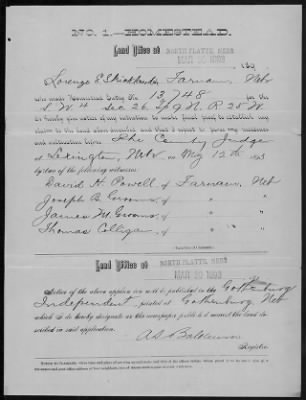 NO. 1.—HOMESTEAD.
Land Office at NORTH PLATTE, NEBR
MAR 20 1893 189
Lorenzo E Strickland Farnam, Neb
who made Homestead Entry No. 13,748 for the
S. W. 4 Sec 26. T. 9 N. R. 25 W.
do hereby give notice of my intention to make final proof to establish my
claim to the land above described, and that I expect to prove my residence
and cultivation before The County Judge
at Lexington, Neb on May 12th 1893
by two of the following witnesses:
David H. Powell, of Farnam, Neb
Joseph B. of " "
James M. of " "
Thomas Colligan, of " "
Land Office at NORTH PLATTE, NEBR
MAR 20 1893
Notice of the above application will be published in the Gothenburg
Independent, printed at Gothenburg, Neb
which I do hereby designate as the newspaper published nearest the land de-
scribed in said application.
A S Baldwin
Register.